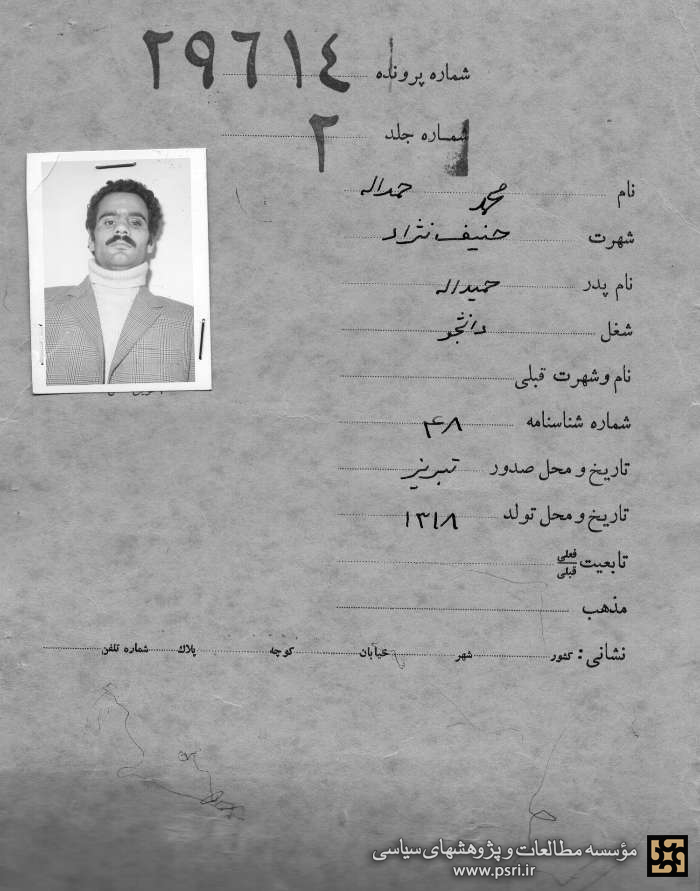 شماره پرونده ٢٩٦١٤
شماره جلد ٢
نام محمد حمداله
شهرت حنیف نژاد
نام پدر حمیداله
شغل دانشجو
نام وشهرت قبلی
شماره شناسنامه ۴۸
تاریخ و محل صدور تبریز
تاریخ و محل تولد ۱۳۱۸
تابعیت فعلی قبلی
مذهب
نشانی: کشور شهر خیابان کوچه پلاک شماره تلفن
مؤسسه مطالعات و پژوهشهای سیاسی
www.psri.ir